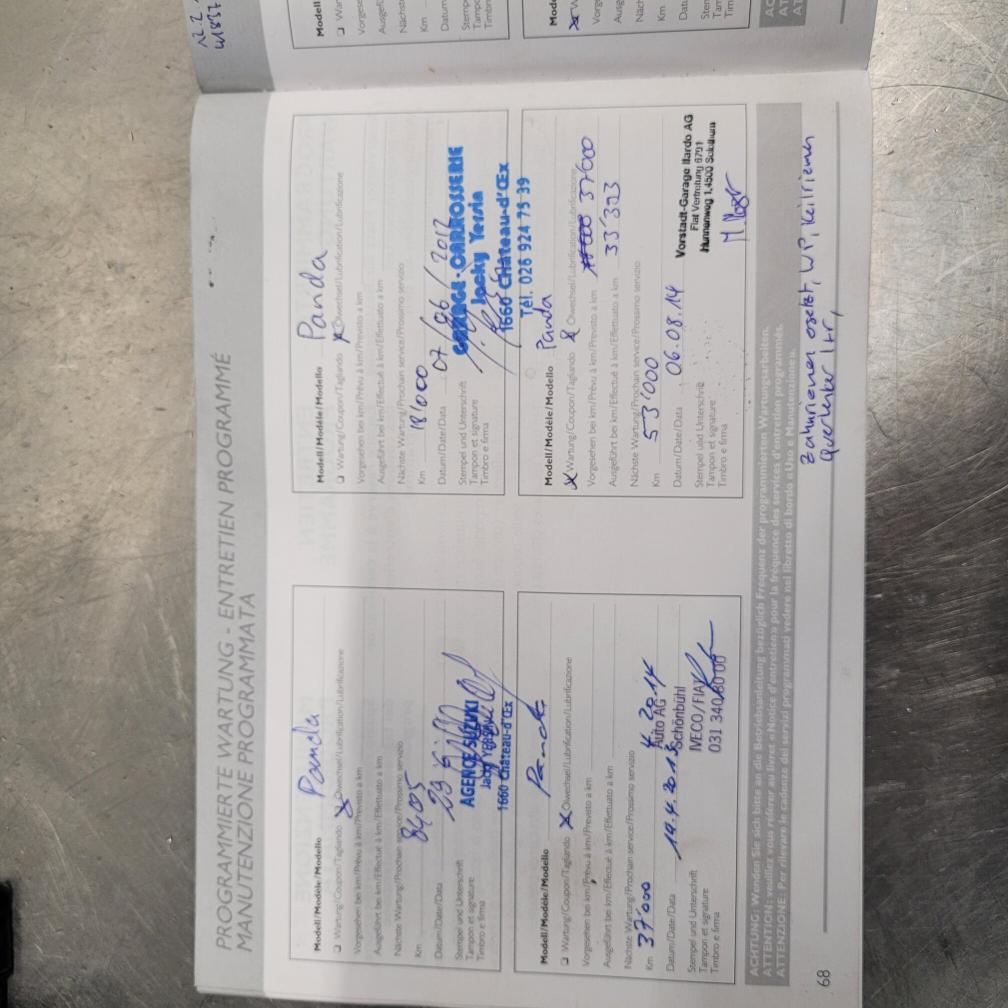 PROGRAMMIERTE WARTUNG - ENTRETIEN PROGRAMMÉ
MANUTENZIONE PROGRAMMATA
Modell/Modèle/Modello Panda
❑ Wartung/Coupon/Tagliando X Ölwechsel/Lubrification/Lubrificazione
Vorgesehen bei km/Prévu à km/Previsto a km
Ausgeführt bei km/Effectué à km/Effettuato a km
Nächste Wartung/Prochain service/Prossimo servizio
Km 8405
Datum/Date/Data
Stempel und Unterschrift
Tampon et signature
Timbro e firma
AGENCE SUZUKI
1660 Château-d'Œx
Modell/Modèle/Modello Panda
❑ Wartung/Coupon/Tagliando X Ölwechsel/Lubrification/Lubrificazione
Vorgesehen bei km/Prévu à km/Previsto a km
Ausgeführt bei km/Effectué à km/Effettuato a km
Nächste Wartung/Prochain service/Prossimo servizio
Km 18'000
Datum/Date/Data 07/06/2012
Stempel und Unterschrift
Tampon et signature
Timbro e firma
GARAGE-CARROSSERIE
Jacky Yersin
1660 Château-d'Œx
Tél. 026 924 75 39
Modell/Modèle/Modello Panda
❑ Wartung/Coupon/Tagliando X Ölwechsel/Lubrification/Lubrificazione
Vorgesehen bei km/Prévu à km/Previsto a km
Ausgeführt bei km/Effectué à km/Effettuato a km
Nächste Wartung/Prochain service/Prossimo servizio
Km 37'000
Datum/Date/Data
Stempel und Unterschrift
Tampon et signature
Timbro e firma
Auto AG
Schönbühl
IVECO/FIAT
031 340 80 00
Modell/Modèle/Modello Panda
X Wartung/Coupon/Tagliando X Ölwechsel/Lubrification/Lubrificazione
Vorgesehen bei km/Prévu à km/Previsto a km 37'000
Ausgeführt bei km/Effectué à km/Effettuato a km 33'303
Nächste Wartung/Prochain service/Prossimo servizio
Km 53'000
Datum/Date/Data 06.08.14
Stempel und Unterschrift
Tampon et signature
Timbro e firma
Vorstadt-Garage Ilardo AG
Fiat Vertretung 6791
Hunnenweg 1, 4500 Solothurn
ACHTUNG: Wenden Sie sich bitte an die Betriebsanleitung bezüglich Frequenz der programmierten Wartungsarbeiten.
ATTENTION: veuillez vous référer au livret «Notice d'entretien» pour la fréquence des services d'entretien programmés.
ATTENZIONE: Per rilevare le cadenze dei servizi programmati vedere nel libretto di bordo «Uso e Manutenzione».
Zahnriemen ersetzt, WP, Keilriemen
Querlenker l+r,
68